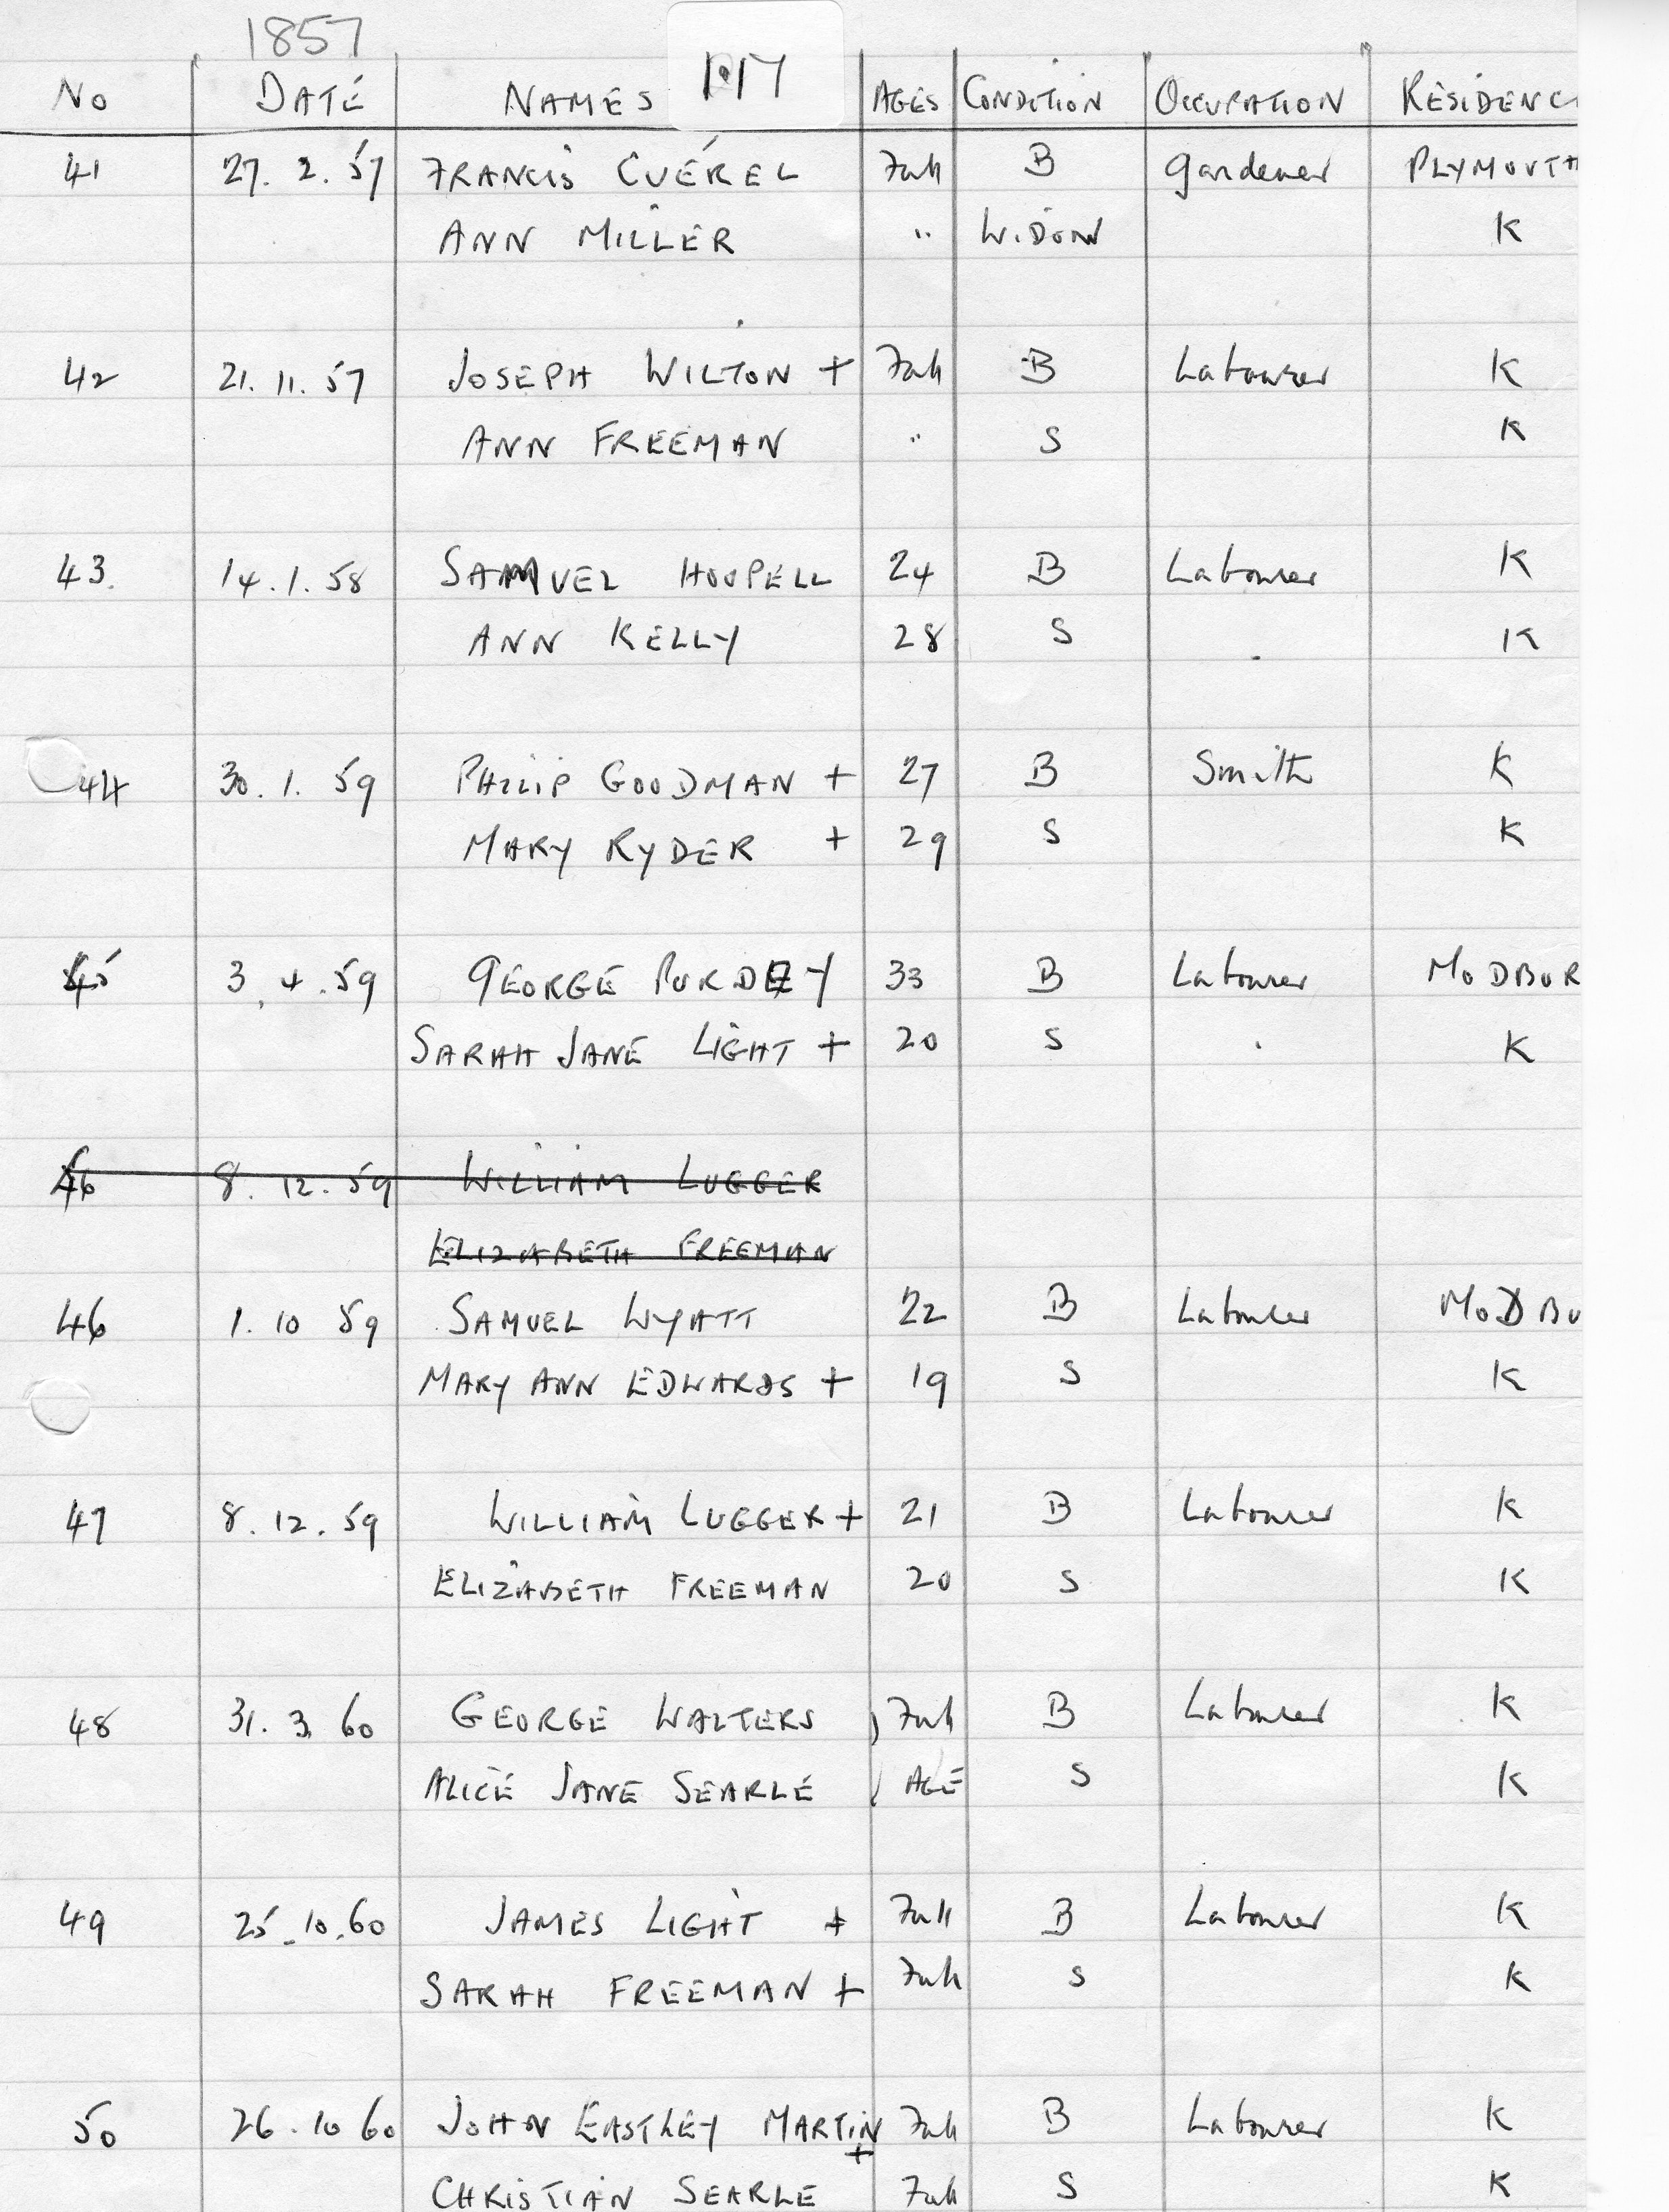 1857
1.17
No DATE NAMES AGES CONDITION OCCUPATION RESIDENC
41 27. 2. 57 FRANCIS CUEREL Full B Gardener PLYMOUTH
ANN MILLER " WIDOW K
42 21. 11. 57 JOSEPH WILTON + Full B Labourer K
ANN FREEMAN " S K
43. 14. 1. 58 SAMUEL HOOPELL 24 B Labourer K
ANN KELLY 28 S K
44 30. 1. 59 PHILIP GOODMAN + 27 B Smith K
MARY RYDER + 29 S K
45 3. 4. 59 GEORGE PURDEY 33 B Labourer MODBUR
SARAH JANE LIGHT + 20 S K
46 8. 12. 59 WILLIAM LUGGER
ELIZABETH FREEMAN
46 1. 10 59 SAMUEL WYATT 22 B Labourer MODBU
MARY ANN EDWARDS + 19 S K
47 8. 12. 59 WILLIAM LUGGER + 21 B Labourer K
ELIZABETH FREEMAN 20 S K
48 31. 3 60 GEORGE WALTERS ) Full B Labourer K
ALICE JANE SEARLE ) AGE S K
49 25. 10. 60 JAMES LIGHT + Full B Labourer K
SARAH FREEMAN + Full S K
50 26. 10 60 JOHN EASTLEY MARTIN + Full B Labourer K
CHRISTIAN SEARLE Full S K